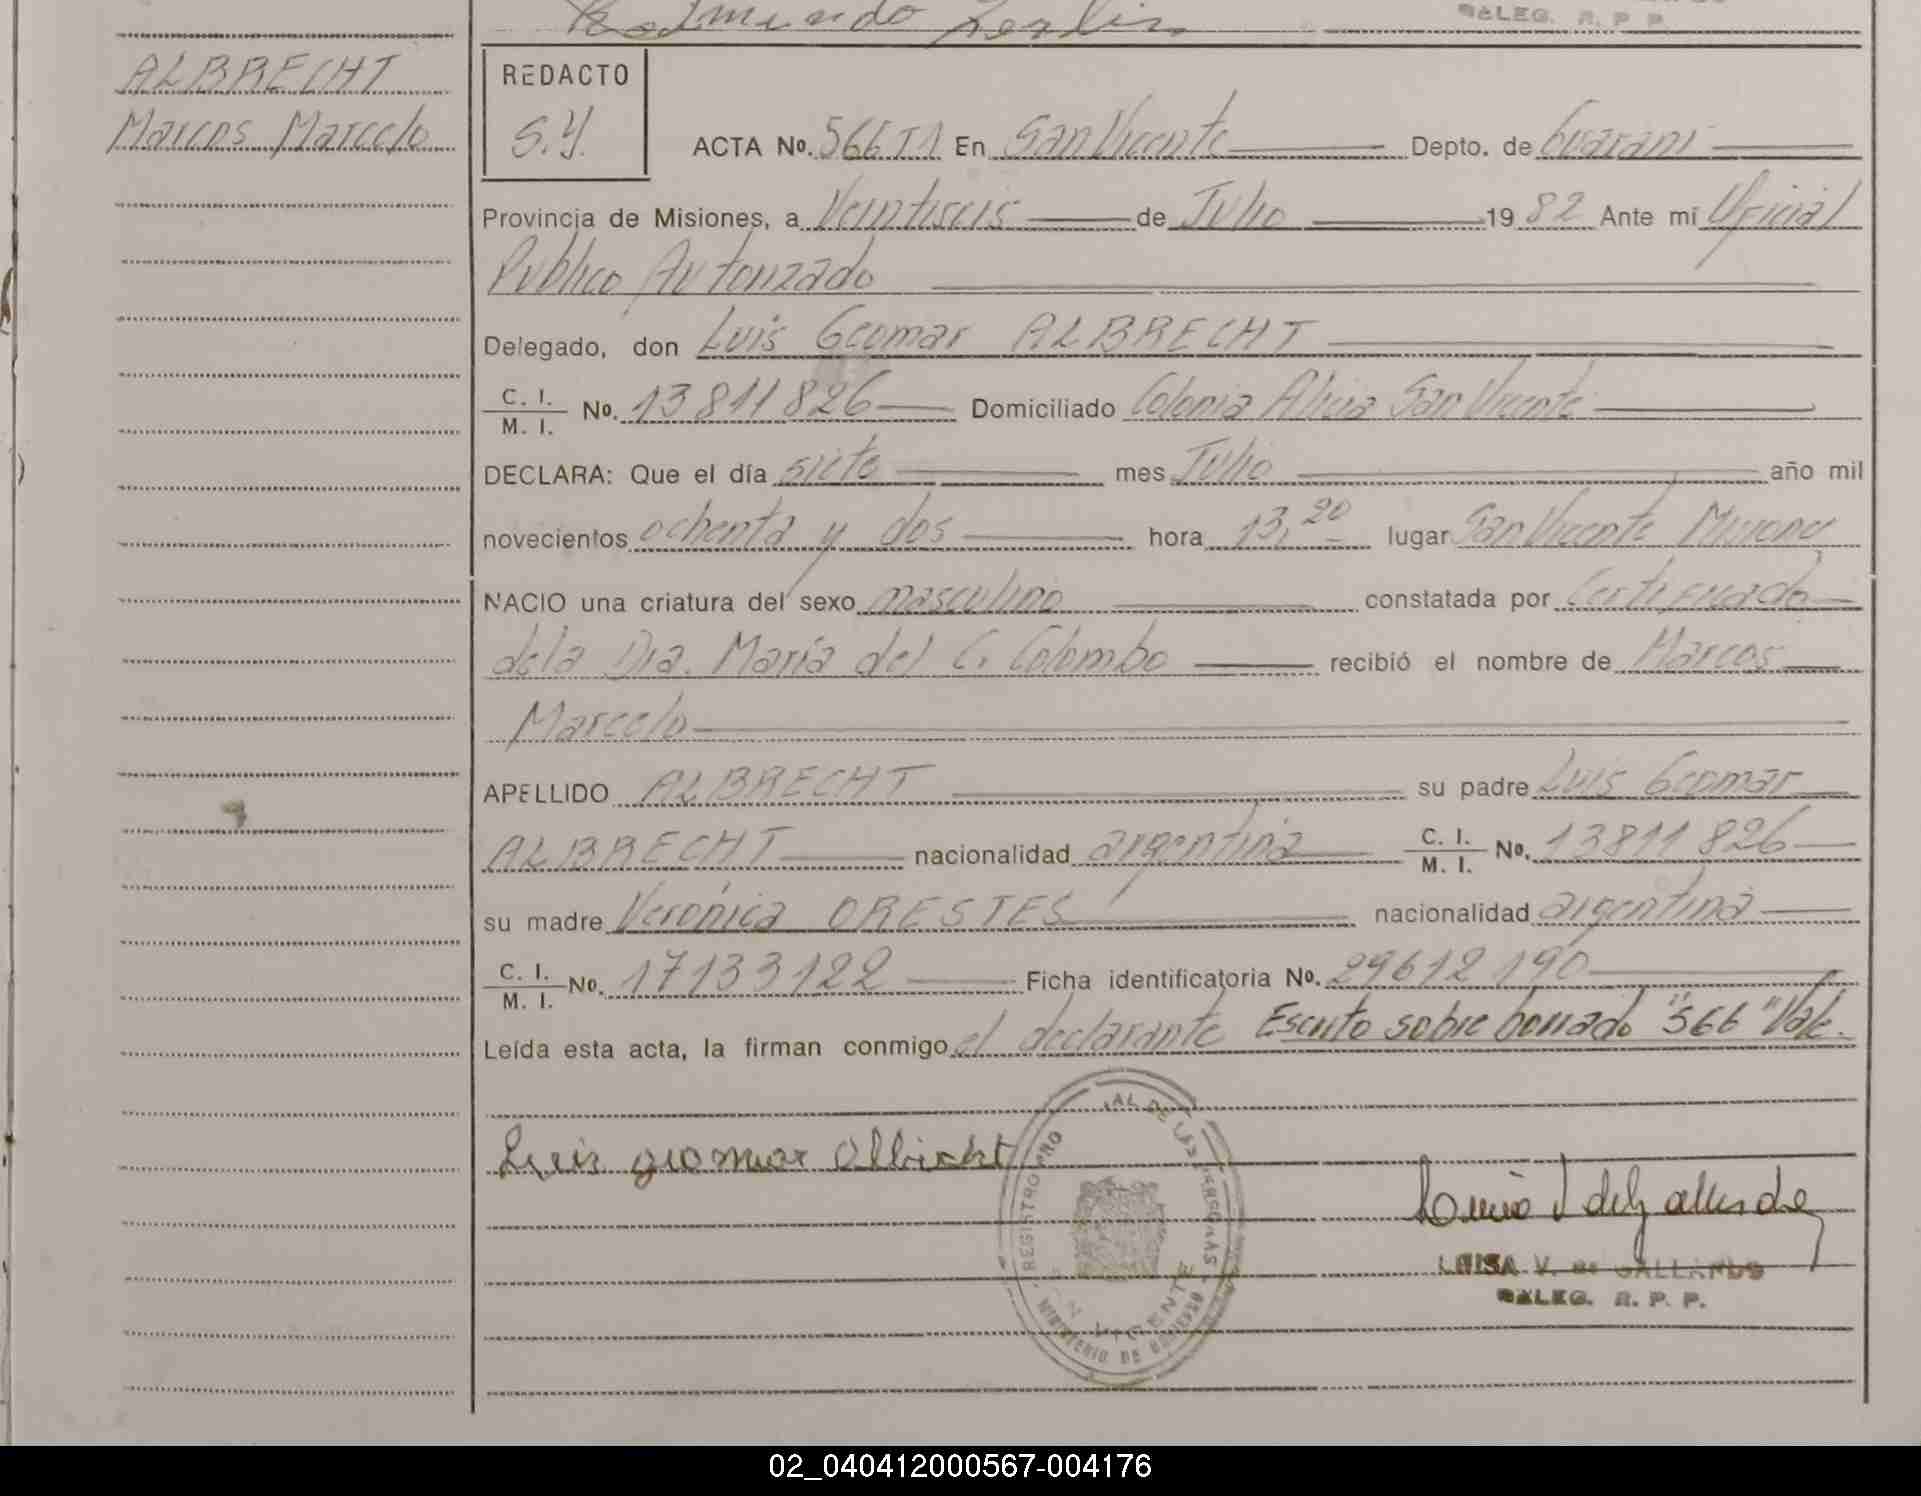 DELEG. R. P. P.
ALBRECHT
Marcos Marcelo
REDACTO
S.Y.
ACTA No. 566 T1 En San Vicente Depto. de Guarani
Provincia de Misiones, a Veintiseis de Julio 1982 Ante mí Oficial
Publico Autorizado
Delegado, don Luis Geomar ALBRECHT
C. I. / M. I. No. 13811826 Domiciliado Colonia Alicia San Vicente
DECLARA: Que el día siete mes Julio año mil
novecientos ochenta y dos hora 13,20 lugar San Vicente Misiones
NACIO una criatura del sexo masculino constatada por Certificado
dela Dra. María del C. Colombo recibió el nombre de Marcos
Marcelo
APELLIDO ALBRECHT su padre Luis Geomar
ALBRECHT nacionalidad argentina C. I. / M. I. No. 13811826
su madre Verónica ORESTES nacionalidad argentina
C. I. / M. I. No. 17133122 Ficha identificatoria No. 29612190
Leída esta acta, la firman conmigo el declarante Escrito sobre borrado "566" Vale.
Luis geomar Albricht
REGISTRO PRO AL DE LAS PERSONAS
VICENTE
MINISTERIO DE GOBIERNO
LUISA V. de GALLARDO
DELEG. R. P. P.
02_040412000567-004176